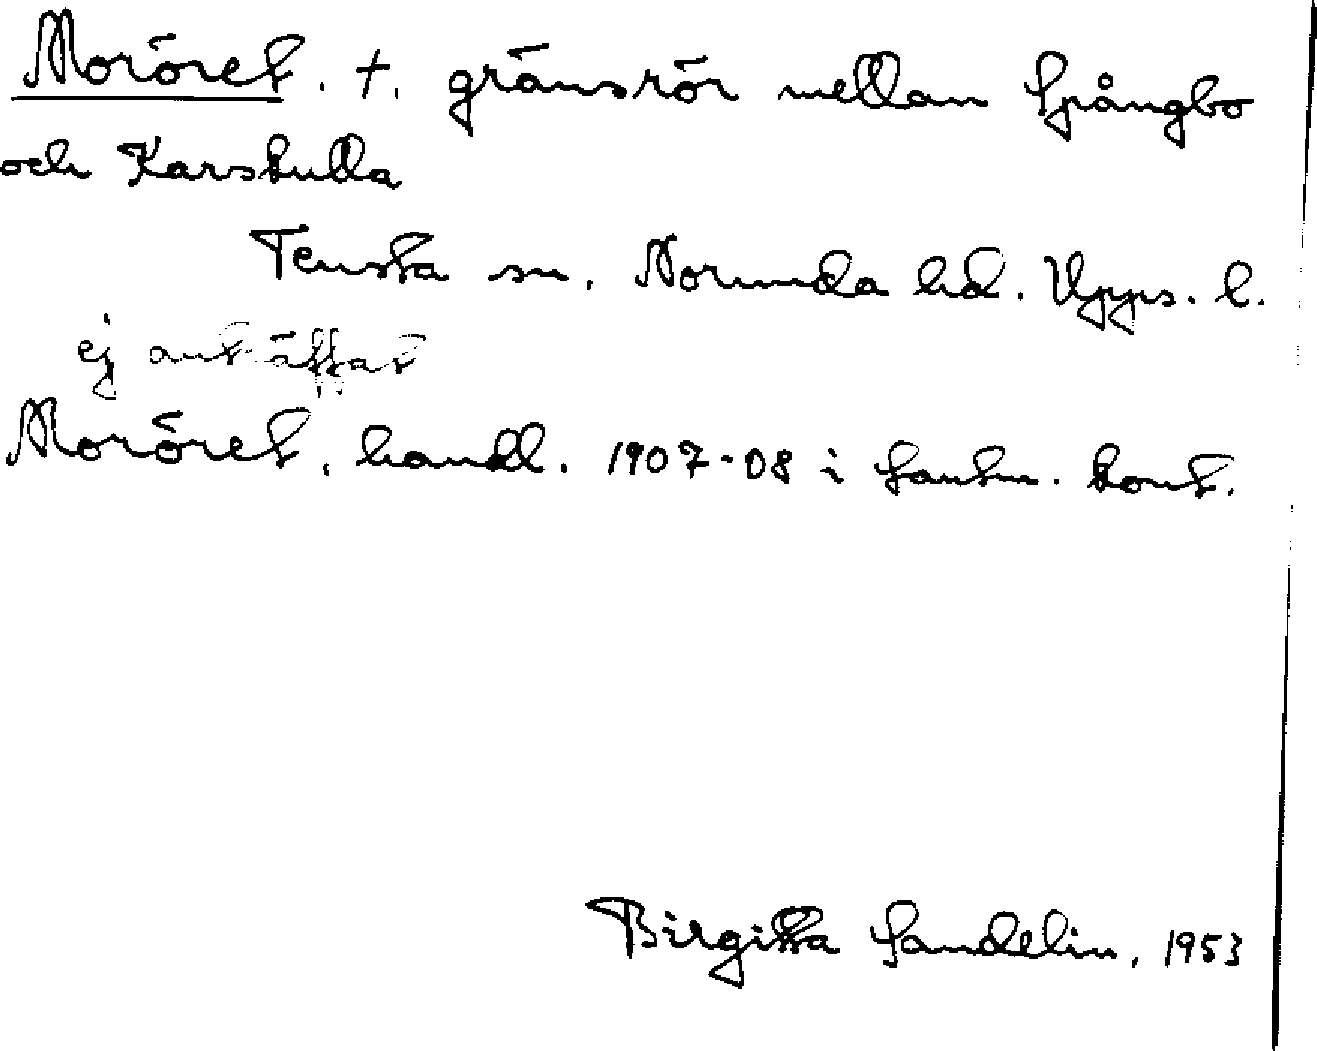 Moröret. †. gränsrör mellan Spångbo
och Karskulla
Tensta sn. Norunda hd. Upps. l.
ej anträffat
Moröret, handl. 1907-08 i lantm. kont.
Birgitta Sandelin, 1953